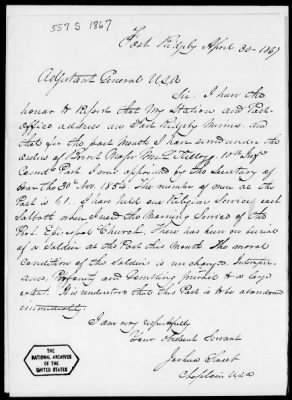 557 S 1867
Fort Ridgely April 30 - 1867
Adjutant General U.S.A
Sir. I have the
honor to Report that My Station and Post-
Office address are Fort Ridgely Minn. and
that for the past Month I have served under the
orders of Brevt Major 10th Inf
Comdg Post. I was appointed by the Secretary of
War the 30th Nov. 1854. The number of men at the
Post is 61. I have held one Religious Service each
Sabbath when I read the Morning Service of the
Prot. Episcopal Church. There has been no burial
of a Soldier at the Post this Month. The moral
condition of the Soldier is unchanged. Intemper-
ance, Profanity and Gambling prevail to a large
extent. It is understood that this Post is to be abandoned
immediately.
I am very respectfully
Your Obedient Servant
Joshua Sweet
Chaplain U.S.A
THE
NATIONAL ARCHIVES
OF THE
UNITED STATES